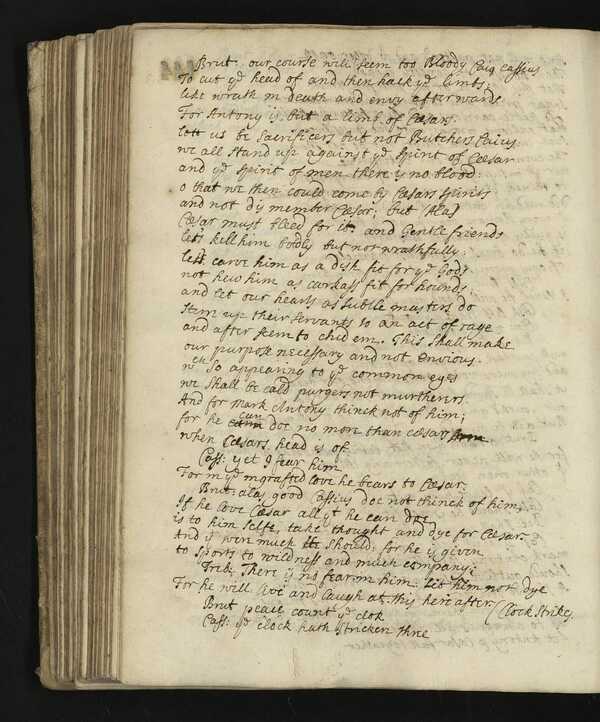 Brut. our course will seem too Bloody Caiq Cassius
To cut yᵉ head of and then hack yᵉ limbs,
like wrath in death and envy afterwards
For Antony is but a limb of Cæsars.
lett us be Sacrificers but not Butchers Caius
we all stand up against yᵉ spirit of Cæsar
and yᵉ spirit of men there is no blood:
o that we then could come by Cæsars spirits
and not dismember Cæsar; but Alas
Cæsar must bleed for it. and Gentle friends
lets kell him boldly but not wrathfully.
lets carve him as a dish fit for yᵉ Gods
not hew him as carkass fit for hounds.
and let our hearts as subtle masters do
stirr up their servants to an act of rage
and after seem to chid em. This shall make
our purpose necessary and not envious.
wᶜʰ so appearing to yᵉ common eyes
we shall be cald purgers not murtherers.
And for mark Antony thinck not of him;
for he can doe no more than Cæsars Arm
when Cæsars head is of
Cass: yet I fear him
For in yᵉ ingrafted love he bears to Cæsar.
Brut: alas good Cassius doe not thinck of him;
If he love Cæsar all yᵗ he can doe
is to him selfe, take thought and dye for Cæsar.
And is were much He should: for he is given
to sports to wildness and much company;
Treb. There is no fear in him. let him not dye
For he will live and laugh at this here after. (Clock Strikes.
Brut peace count yᵉ clok
Cass: yᵉ clock hath stricken thre